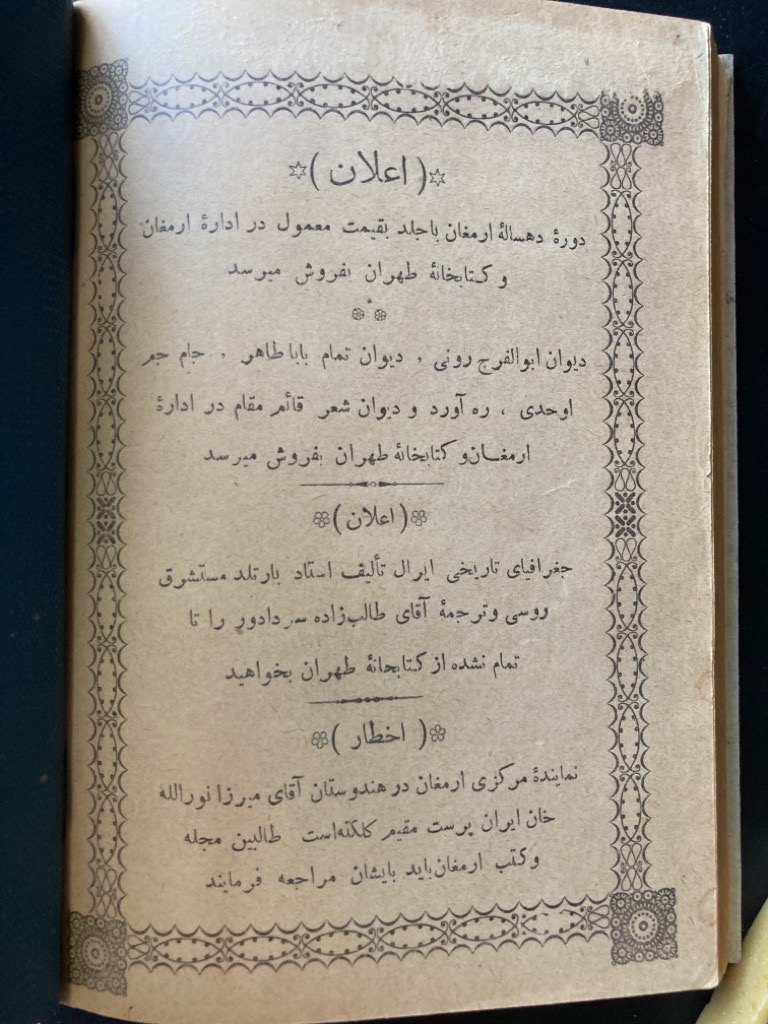 (اعلان)
دورهٔ دهسالهٔ ارمغان باجلد بقیمت معمول در ادارهٔ ارمغان
و کتابخانهٔ طهران بفروش میرسد
دیوان ابوالفرج رونی ، دیوان تمام باباطاهر ، جام جم
اوحدی ، ره آورد و دیوان شعر قائم مقام در ادارهٔ
ارمغان و کتابخانهٔ طهران بفروش میرسد
(اعلان)
جغرافیای تاریخی ایران تألیف استاد بارتلد مستشرق
روسی و ترجمهٔ آقای طالب‌زاده سردادور را تا
تمام نشده از کتابخانهٔ طهران بخواهید
(اخطار)
نمایندهٔ مرکزی ارمغان در هندوستان آقای میرزا نورالله
خان ایران پرست مقیم کلکته‌است طالبین مجله
و کتب ارمغان باید بایشان مراجعه فرمایند